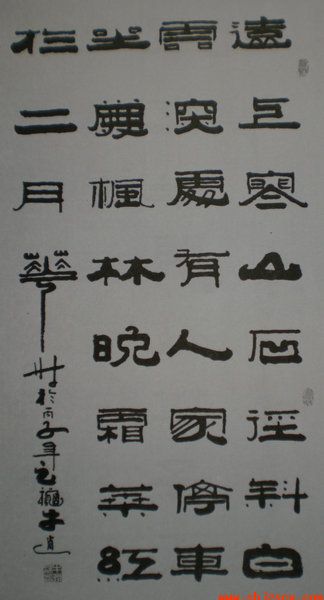 遠上寒山石徑斜白
雲深處有人家停車
坐愛楓林晚霜葉紅
於二月華
於丙子年